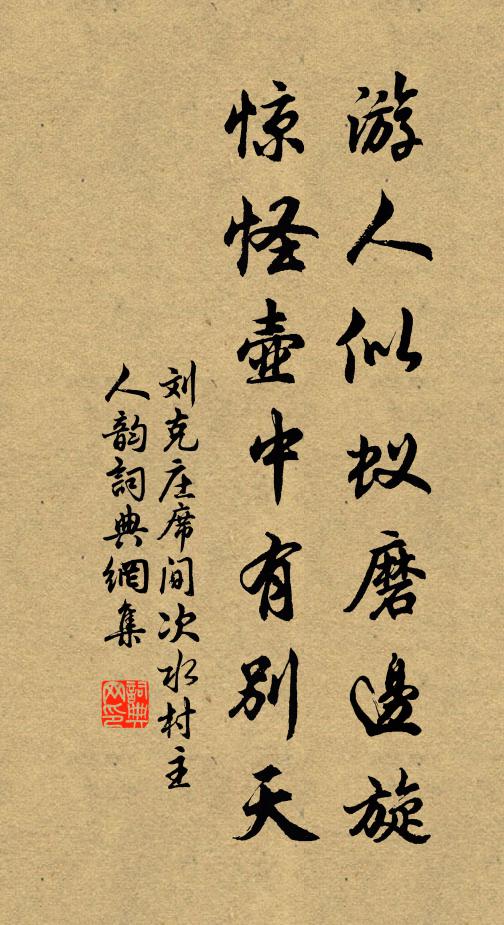 游人似蚁磨邊旋
惊怪壶中有别天
刘克庄席间次水村主
人韵詞典網集
詞典网印